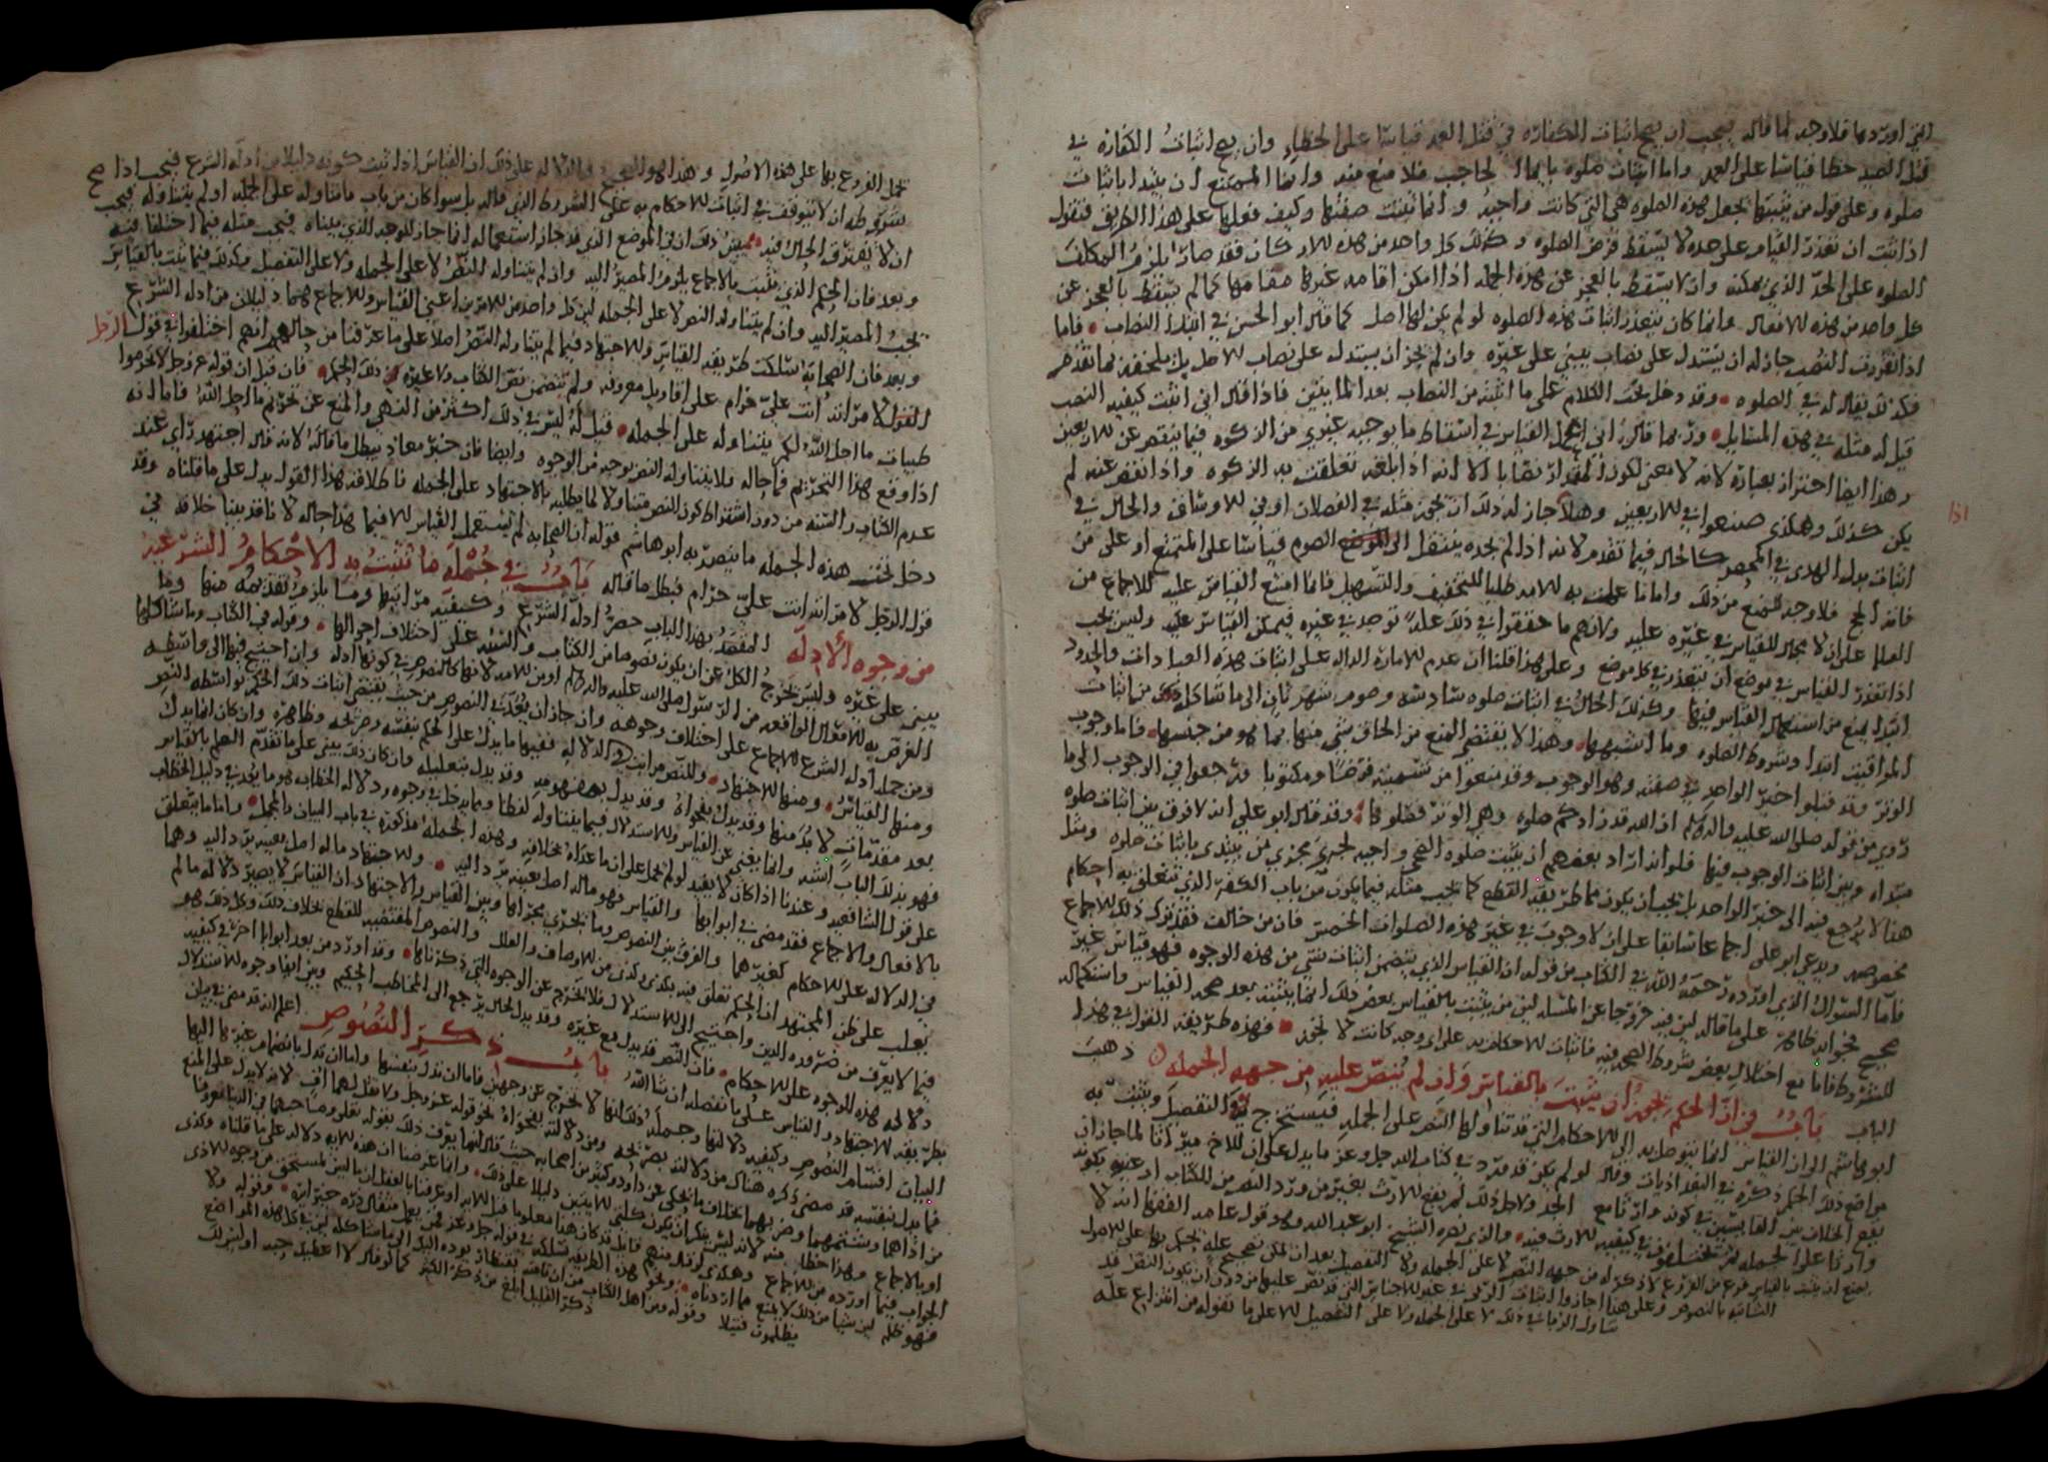 التي اوردها فلا وجه لما قاله يجب ان يصح اثبات الكفاره في قتل العمد قياسا على الخطاء وان يصح اثبات الكفاره في
قتل الصيد خطا قياسا على العمد واما اثبات صلوه بايماء الحاجب فلا منع منه وانما الممتنع ان يبتدا باثبات
صلوه وعلى قول من يثبتها يجعل هذه الصلوه هي التي كانت واجبه وانما يثبت صفتها وكيف فعلها على هذا الطريق فنقول
اذا ثبت ان تعذر القيام على حده لا يسقط فرض الصلوه وكذلك كل واحد من هذه الاركان فقد صار يلزم المكلف
الصلوه على الحد الذي يمكنه وان لا يسقط بالعجز عن هذه الجمله اذا امكن اقامه غيرها مقامها كما لم يسقط بالعجز عن
كل واحد من هذه الافعال وانما كان يتعذر اثبات هذه الصلوه لو لم يكن لها اصل كما قال ابو الحسن في ابتدا النصاب فاما
اذا تقررت النصب جاز له ان يستدل على نصاب يبني على غيره وان لم يجز ان يبتدل على نصاب الاصل
فكذلك يقال له في الصلوه وقد دخل تحت الكلام على ما اثبته من النصاب بعد المايتين فاذا قال اني اثبت كيفيه النصب
قيل له مثله في هذه المسايل وربما قال اني اعمل القياس في اسقاط ما يوجبه غيري من الزكوه فيما ينقص عن الاربعين
وهذا ايضا احتراز بعباره لانه لا معنى لكون المقدار نصابا الا انه اذا بلغه تعلقت به الزكوه واذا نقص عنه لم
يكن كذلك وهكذى صنعوا في الاربعين وهلا جاز له ذلك ان يجوز مثله في الفصلان او في الاوساق والحال في
اثبات بدل الهدى في المحصر كالحال فيما تقدم لانه اذا لم يجده ينتقل الى الصوم قياسا على المتمتع او على من
فاته الحج فلا وجه للمنع من ذلك
العلما على ان لا مجال للقياس في غيره عليه ولانهم ما حققوا في ذلك عله توجد في غيره فيمكن القياس عليه وليس يجب
اذا تعذر القياس في موضع ان يتعذر في كل موضع وعلى هذا قلنا ان عدم الاماره الداله على اثبات هذه العبادات والحدود
ابتدا يمنع من استعمال القياس فيها وكذلك الحال في اثبات صلوه سادسه وصوم شهر ثان الى ما شاكله من اثبات
المواقيت ابتدا وشروط الصلوه وما اشبهها وهذا لا يقتضي المنع من الحاق شي منها بما هو من جنسها فاما وجوب
الوتر وقد قبلوا خبر الواحد في صفته وهو الوجوب وقد منعوا من تسميته فرضا ومكتوبا فرجعوا في الوجوب الى ما
روي من قوله صلى الله عليه واله ان الله قد زادكم صلوه وهي الوتر فصلوها وقد قال ابو علي انه لا فرق بين اثبات صلوه
مبتداه وبين اثبات الوجوب فيها فلو انه اراد بعضهم ان يثبت صلوه الضحى واجبه لجرى مجرى من يبتدى باثبات صلوه ومثل
هذا لا يرجع فيه الى خبر الواحد بل يجب ان يكون مما طريقه القطع كما يجب مثله فيما يكون من باب الكفر الذي تتعلق به احكام
مخصوصه ويدعي ابو علي اجماعا سابقا على ان لا وجوب في غير هذه الصلوات الخمس فان من خالف فقد ترك ذلك الاجماع
فاما السؤال الذي اورده رحمه الله في الكتاب من قوله ان القياس الذي يتضمن اثبات شي من هذه الوجوه فهو قياس غير
صحيح فجوابه ظاهر على ما قاله لان فيه خروجا عن المسله لان من يثبت بالقياس بعض ذلك انما يثبته بعد صحه القياس واستكماله
للشروط فاما مع اختلال بعض شروط الصحه فيه فاثبات الاحكام به على اي وجه كانت لا يجوز فهذه طريقه القول في هذا
الباب باب في ان الحكم يجوز ان يثبت بالقياس وان لم ينص عليه من جهه الجمله ذهب
ابو هاشم الى ان القياس انما يتوصل به الى الاحكام التي قد تناولها النص على الجمله فيستخرج به التفصيل ويثبت به
مواضع ذلك الحكم ذكره في البغداذيات وقال لو لم يكن قد ورد في كتاب الله جل وعز ما يدل على ان للاخ ميراثا لما جاز ان
يقع الخلاف بين القايسين في كونه وارثا مع الجد ولاجل ذلك لم يقع الارث بغير من ورد النص من الكتاب او غيره بكونه
وارثا على الجمله ثم تختلفون في كيفيه الارث فيه والذي نصره الشيخ ابو عبد الله وهو قول عامه الفقها انه لا
يمتنع ان يثبت بالقياس فرع من الفروع لا ذكر له من جهه النص لا على الجمله ولا التفصيل بعد ان يمكن تصحيح عله يحمل بها على الاصول
الثابته بالنصوص وعلى هذا اجازوا اثبات الربوا في غير الاجناس التي قد نص عليها من دون ان يكون النص قد
تناول الربا في ذلك لا على الجمله ولا على التفصيل الا على ما نقوله من انتزاع عله
تحمل الفروع بها على هذه الاصول وهذا هو الصحيح والدلاله على ذلك ان القياس اذا ثبت كونه دليلا من ادله الشرع فيجب اذا صح
بشروطه ان لا يتوقف في اثبات الاحكام به على الشروط الذي قاله بل سوا كان من باب ما تناوله على الجمله او لم يتناوله فيجب
ان لا يفترق الحال فيه يبين ذلك ان في الموضع الذي قد جاز استعماله انما جاز للوجه الذي بيناه فيجب مثله فيما اختلفنا فيه
وبعد فان الحكم الذي يثبت بالاجماع يلزم المصير اليه وان لم يتناوله النص لا على الجمله ولا على التفصيل وكذلك فيما يثبت بالقياس
يجب المصير اليه وان لم يتناوله النص لا على الجمله لان كل واحد من الامرين اعني القياس والاجماع هما دليلان من ادله الشرع
وبعد فان الصحابه سلكت طريقه القياس والاجتهاد فيما لم يتناوله النص اصلا على ما عرفنا من حالهم انهم اختلفوا في قول الرجل
لامراته انت علي حرام على اقاويل معروفه ولم يتضمن نص الكتاب ولا غيره ذلك الحكم فان قيل ان قوله عز وجل لا تحرموا
طيبات ما احل الله لكم يتناوله على الجمله قيل له ليس في ذلك اكثر من النهي والمنع عن تحريم ما احل الله فاما انه
اذا وقع هذا التحريم فما حاله فلا يتناوله النص بوجه من الوجوه وايضا فان خبر معاذ يبطل ما قاله لانه قال اجتهد رأي عند
عدم الكتاب والسنه من دون اشتراط كون النص متناولا لما يطلبه بالاجتهاد على الجمله فاطلاقه هذا القول يدل على ما قلناه وقد
دخل تحت هذه الجمله ما ينصر به ابو هاشم قوله ان الصحابه لم تستعمل القياس الا فيما هذا حاله لانا قد بينا خلافه في
قول الرجل لامراته انت علي حرام فبطل ما قاله باب في جمله ما تثبت به الاحكام الشرعيه
من وجوه الادله المقصد بهذا الباب حصر ادله الشرع وكيفيه مراتبها وما يلزم تقديمه منها وما
يبنى على غيره وليس يخرج الكل عن ان يكون نصوصا من الكتاب والسنه على اختلاف احوالها وقوله في الكتاب وما شاكلها
الغرض به الاقوال الواقعه من الرسول صلى الله عليه واله او من الامه لانها كالنصوص في كونها ادله وان احتيج فيها الى واسطه
ومن جمله ادله الشرع الاجماع على اختلاف وجوهه وان جاز ان يعد في النصوص من حيث يقتضي اثبات ذلك الحكم بواسطه النص
ومنها القياس ومنها الاجتهاد وللنصوص مراتب في الدلاله ففيها ما يدل على الحكم بنفسه وصريحه وظاهره وان كان انما يدل
بعد مقدمات لا بد منها وقد يدل بفحواه وقد يدل بمفهومه وقد يدل بتعليله وان كان ذلك يبنى على ما تقدم العلم بالقياس
فهو بذلك الباب اشبه وانما يغني عن القياس والاستدلال فيما يتناوله لفظا ومما يدخل في وجوه دلاله الخطاب هو ما يعد في دليل الخطاب
على قول الشافعيه وعندنا اذا كان لا يفيد لو لم يحمل على ان ما عداه بخلافه وهذه الجمله مذكوره في باب البيان والمجمل واما ما يتعلق
بالافعال والاجماع فقد مضى في ابوابها والقياس فهو ماله اصل بعينه يرد اليه والاجتهاد ماله اصل بعينه يرد اليه وهما
في الدلاله على الاحكام كغيرهما والفرق بين النصوص وما يجري مجراها وبين القياس والاجتهاد ان القياس لا يصير دلاله ما لم
يغلب على ظن المجتهد ان الحكم تعلق فيه بكذى وكذى من الاوصاف والعلل والنصوص المقتضيه للقطع بخلاف ذلك وكل ذلك هو
فيما لا يعرف من ضروره الدين واحتيج الى الاستدلال فلا تخرج عن الوجوه التي ذكرناها وقد اورد من بعد ابوابا اخر في كيفيه
دلاله هذه الوجوه على الاحكام فان النص قد يدل مع غيره وقد يدل الحال يرجع الى المخاطب الحكيم وبين ايضا وجوه الاستدلال
بطريقه الاجتهاد والقياس على ما نفصله ان شا الله باب ذكر النصوص اعلم انه قد مضى في بيان
البيان اقسام النصوص وكيفيه دلالتها وجمله ذلك انها لا تخرج عن وجهين فاما ان تدل بنفسها واما ان تدل بانضمام غيرها اليها
فما يدل بنفسه قد مضى ذكره هناك من دلالته بصريحه ومن دلالته بفحواه نحو قوله عز وجل ولا تقل لهما اف لانه لا يدل على المنع
من اذاهما وشتمهما وضربهما بخلاف ما يحكى عن داود وكثير من اصحابه حيث قال انما يعرف ذلك بقوله تعلى وصاحبهما في الدنيا معروفا
او بالاجماع وهذا خطا منه لانه ليس ينكر ان يكون كلتى الايتين دليلا على ذلك وانما غرضنا ان هذه الايه دلاله على ما قلناه وكذى
الجواب فيما اورده من الاجماع وهكذى لو قال منهم قايل قد كان هذا معلوما قبل الايه او عرفنا بالعقل ان ما ليس بمستحق من وجوه الاذى
فهو ظلم لان شيا من ذلك لا يمنع مما اردناه ونحو هذه الطريقه نسلكه في قوله جل وعز فمن يعمل مثقال ذره خيرا يره وقوله ولا
يظلمون فتيلا وقوله ومن اهل الكتاب من ان تامنه بقنطار يوده اليك الى ما شاكله
ذكر القليل ابلغ من ذكر الكثير كما لو قال لا اعطيك حبه